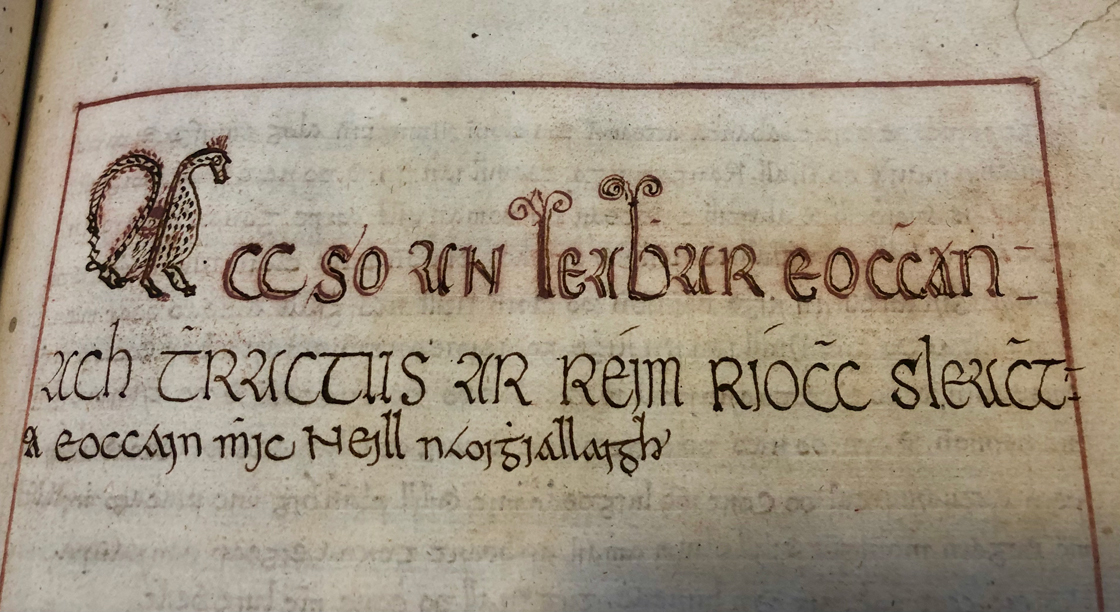 Acc so an leabhar eoccan=
ach tractus ar reim rioċċ sleaċt=
a eoccain mic Neill naoiġiallaigh